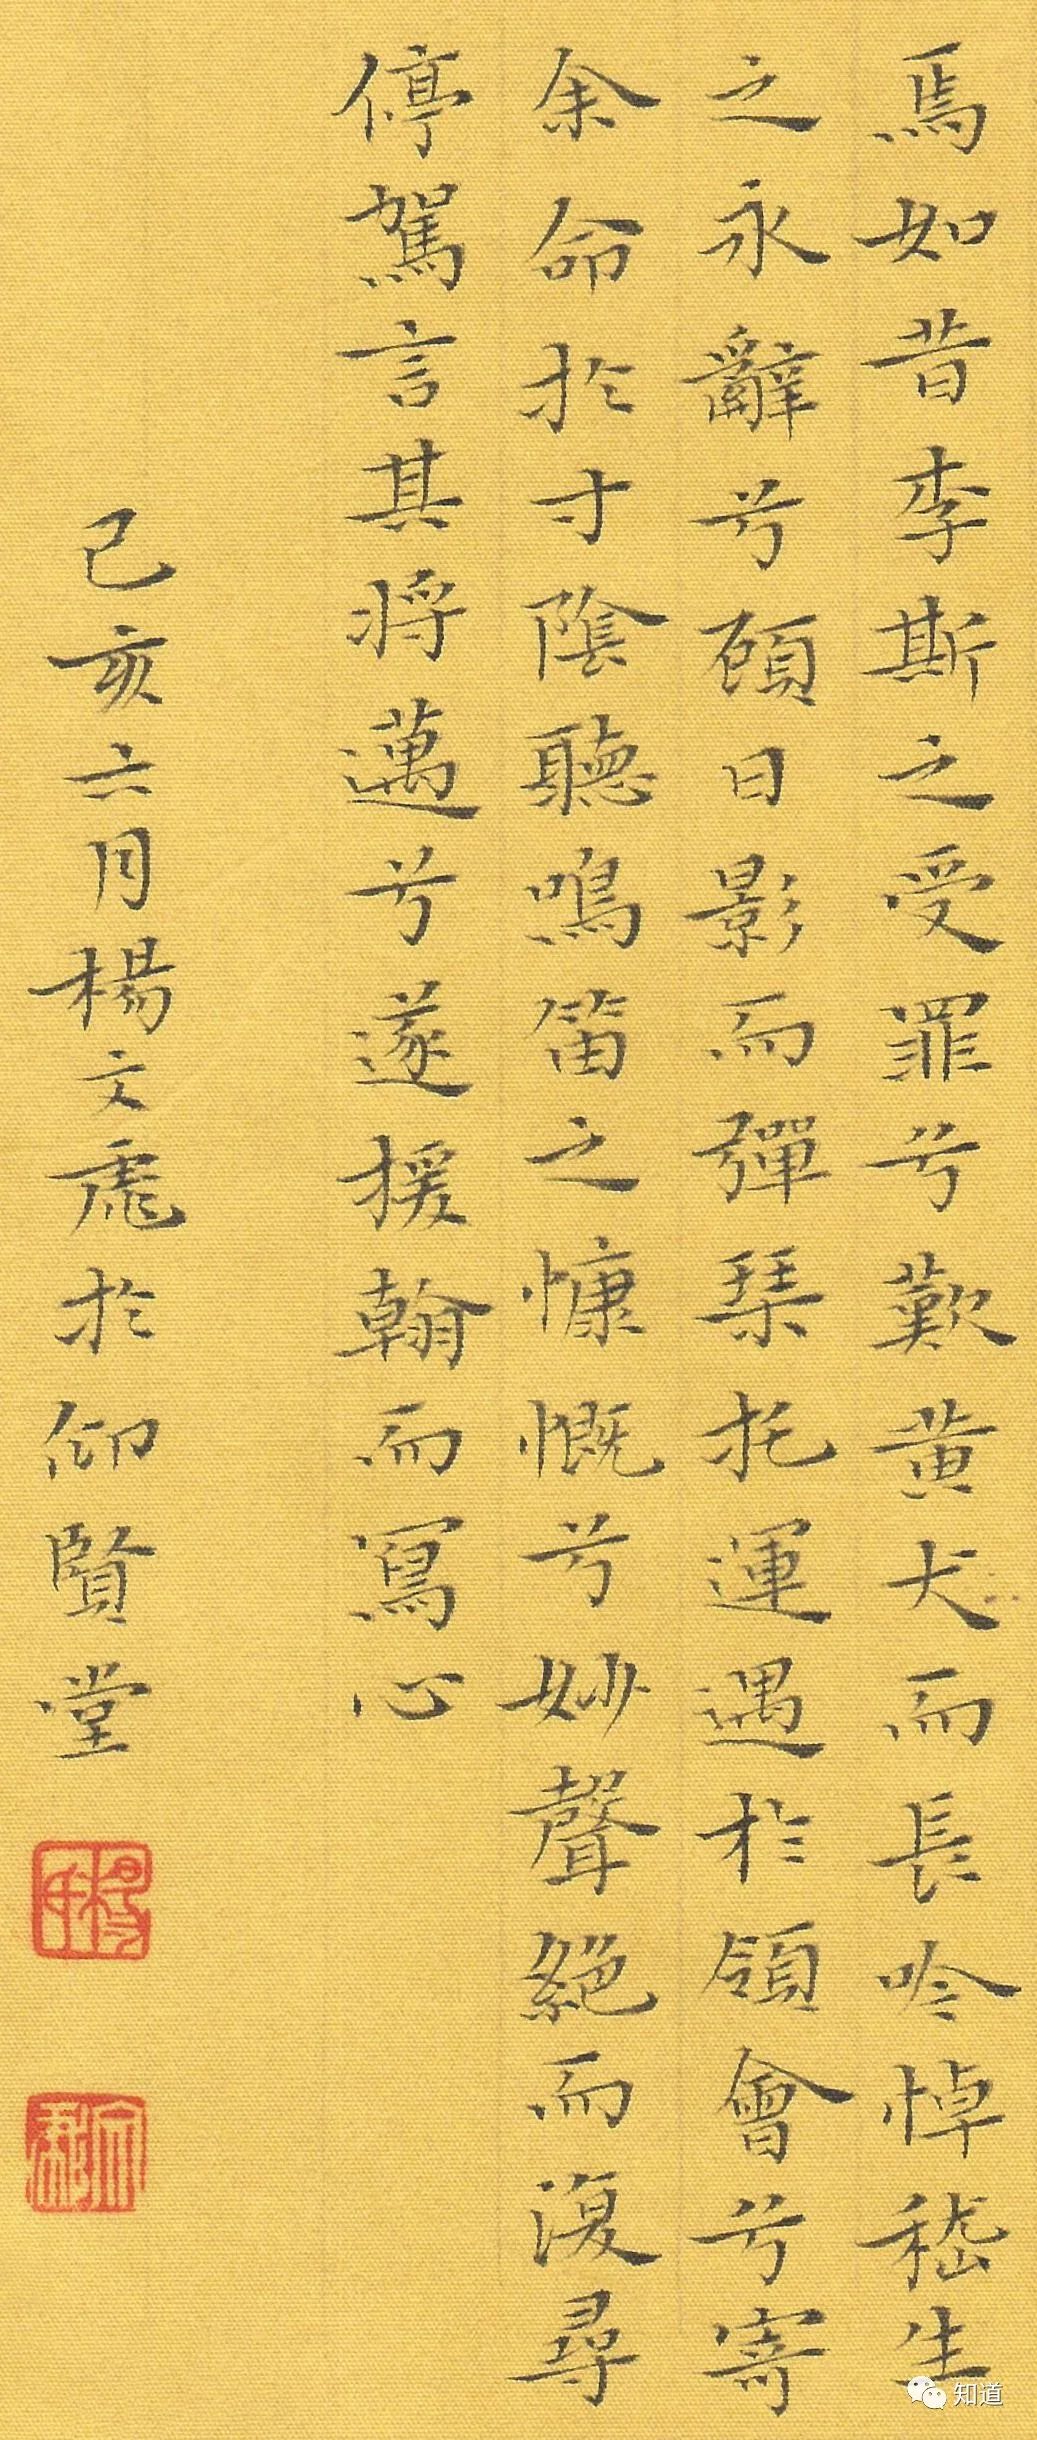 焉如昔李斯之受罪兮歎黃犬而長吟悼嵇生
之永辭兮顧日影而彈琴托運遇於領會兮寄
余命於寸陰聽鳴笛之慷慨兮妙聲絕而復尋
停駕言其將邁兮遂援翰而寫心
己亥六月楊文虎於仰賢堂
知道